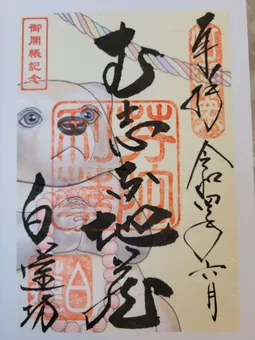 奉拝
令和四年六月
む志な地蔵
御開帳記念
白蓮坊